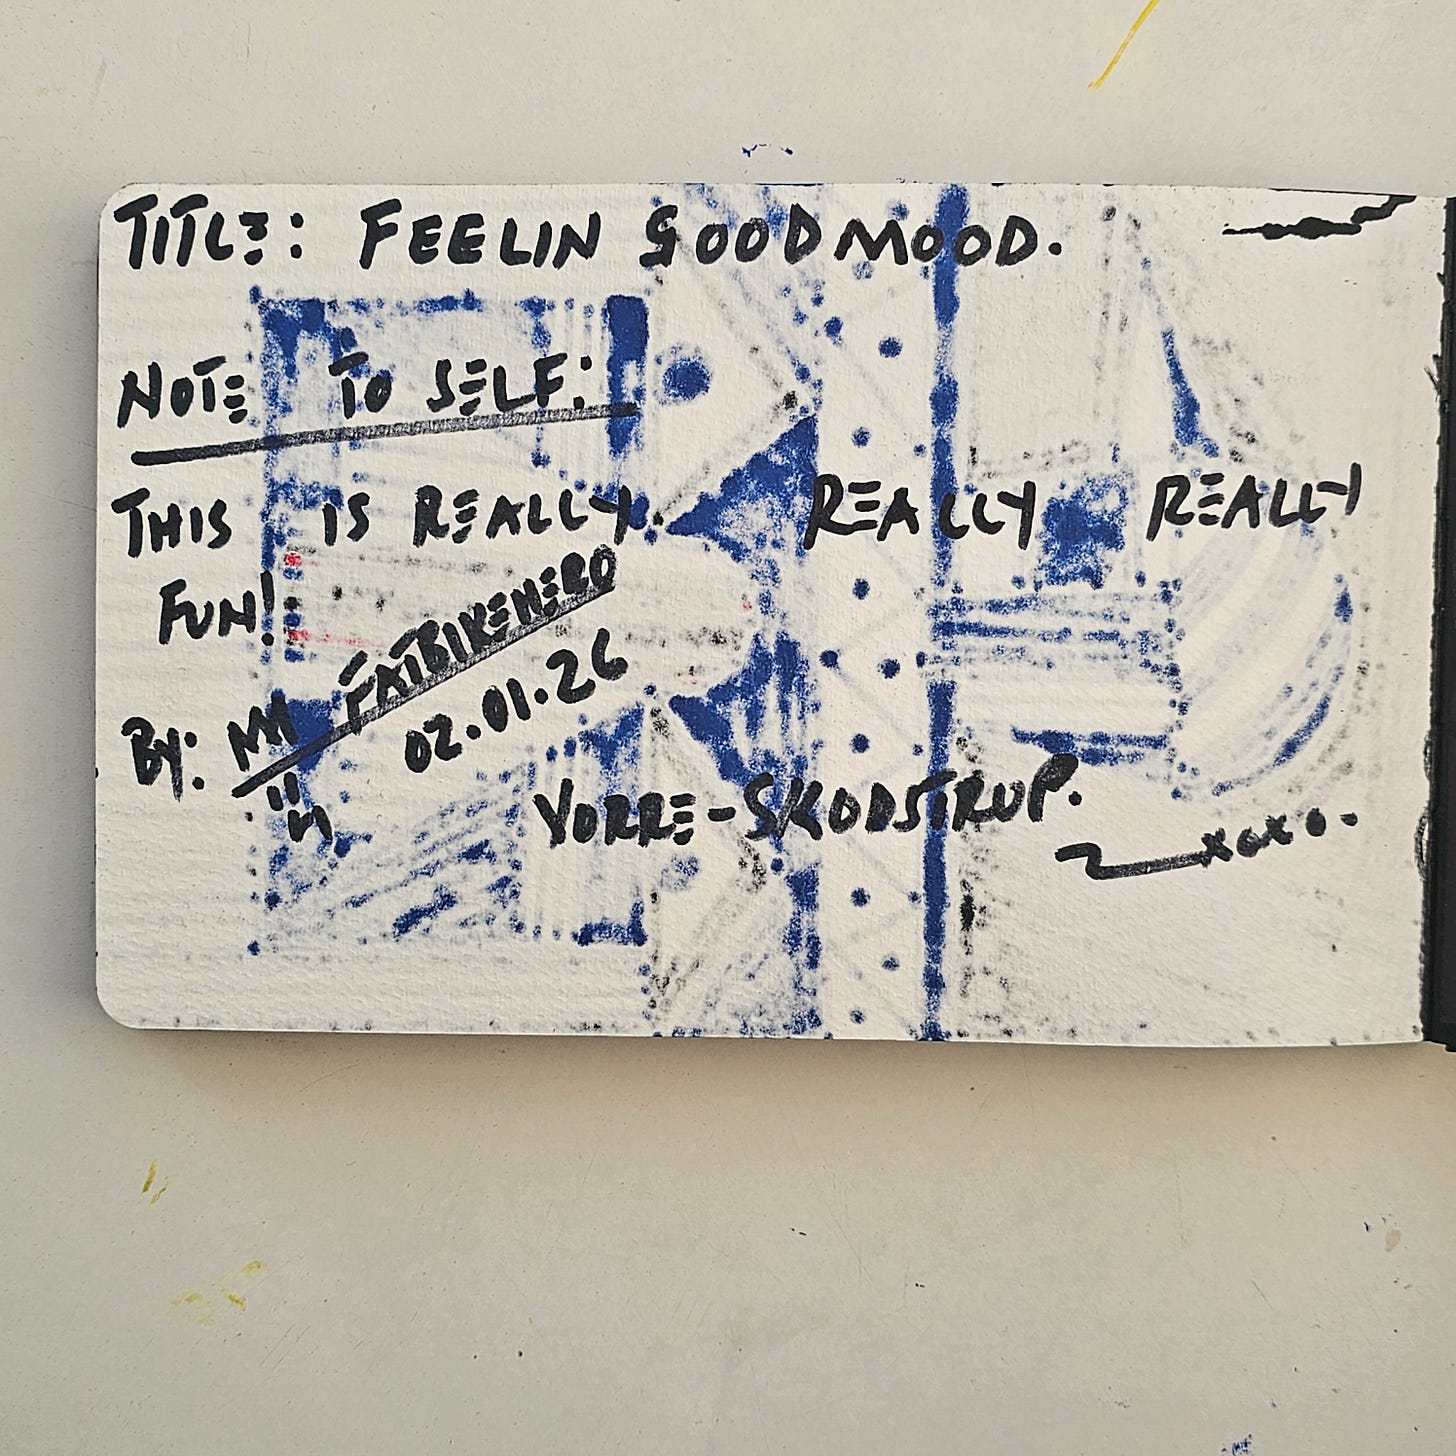 TITLE: FEELIN GOOD MOOD.
NOTE TO SELF:
THIS IS REALLY REALLY REALLY
FUN!
BY: MJ FATBIKEHERO
02.01.26
VORRE-SKØDSTRUP.
xoxo.